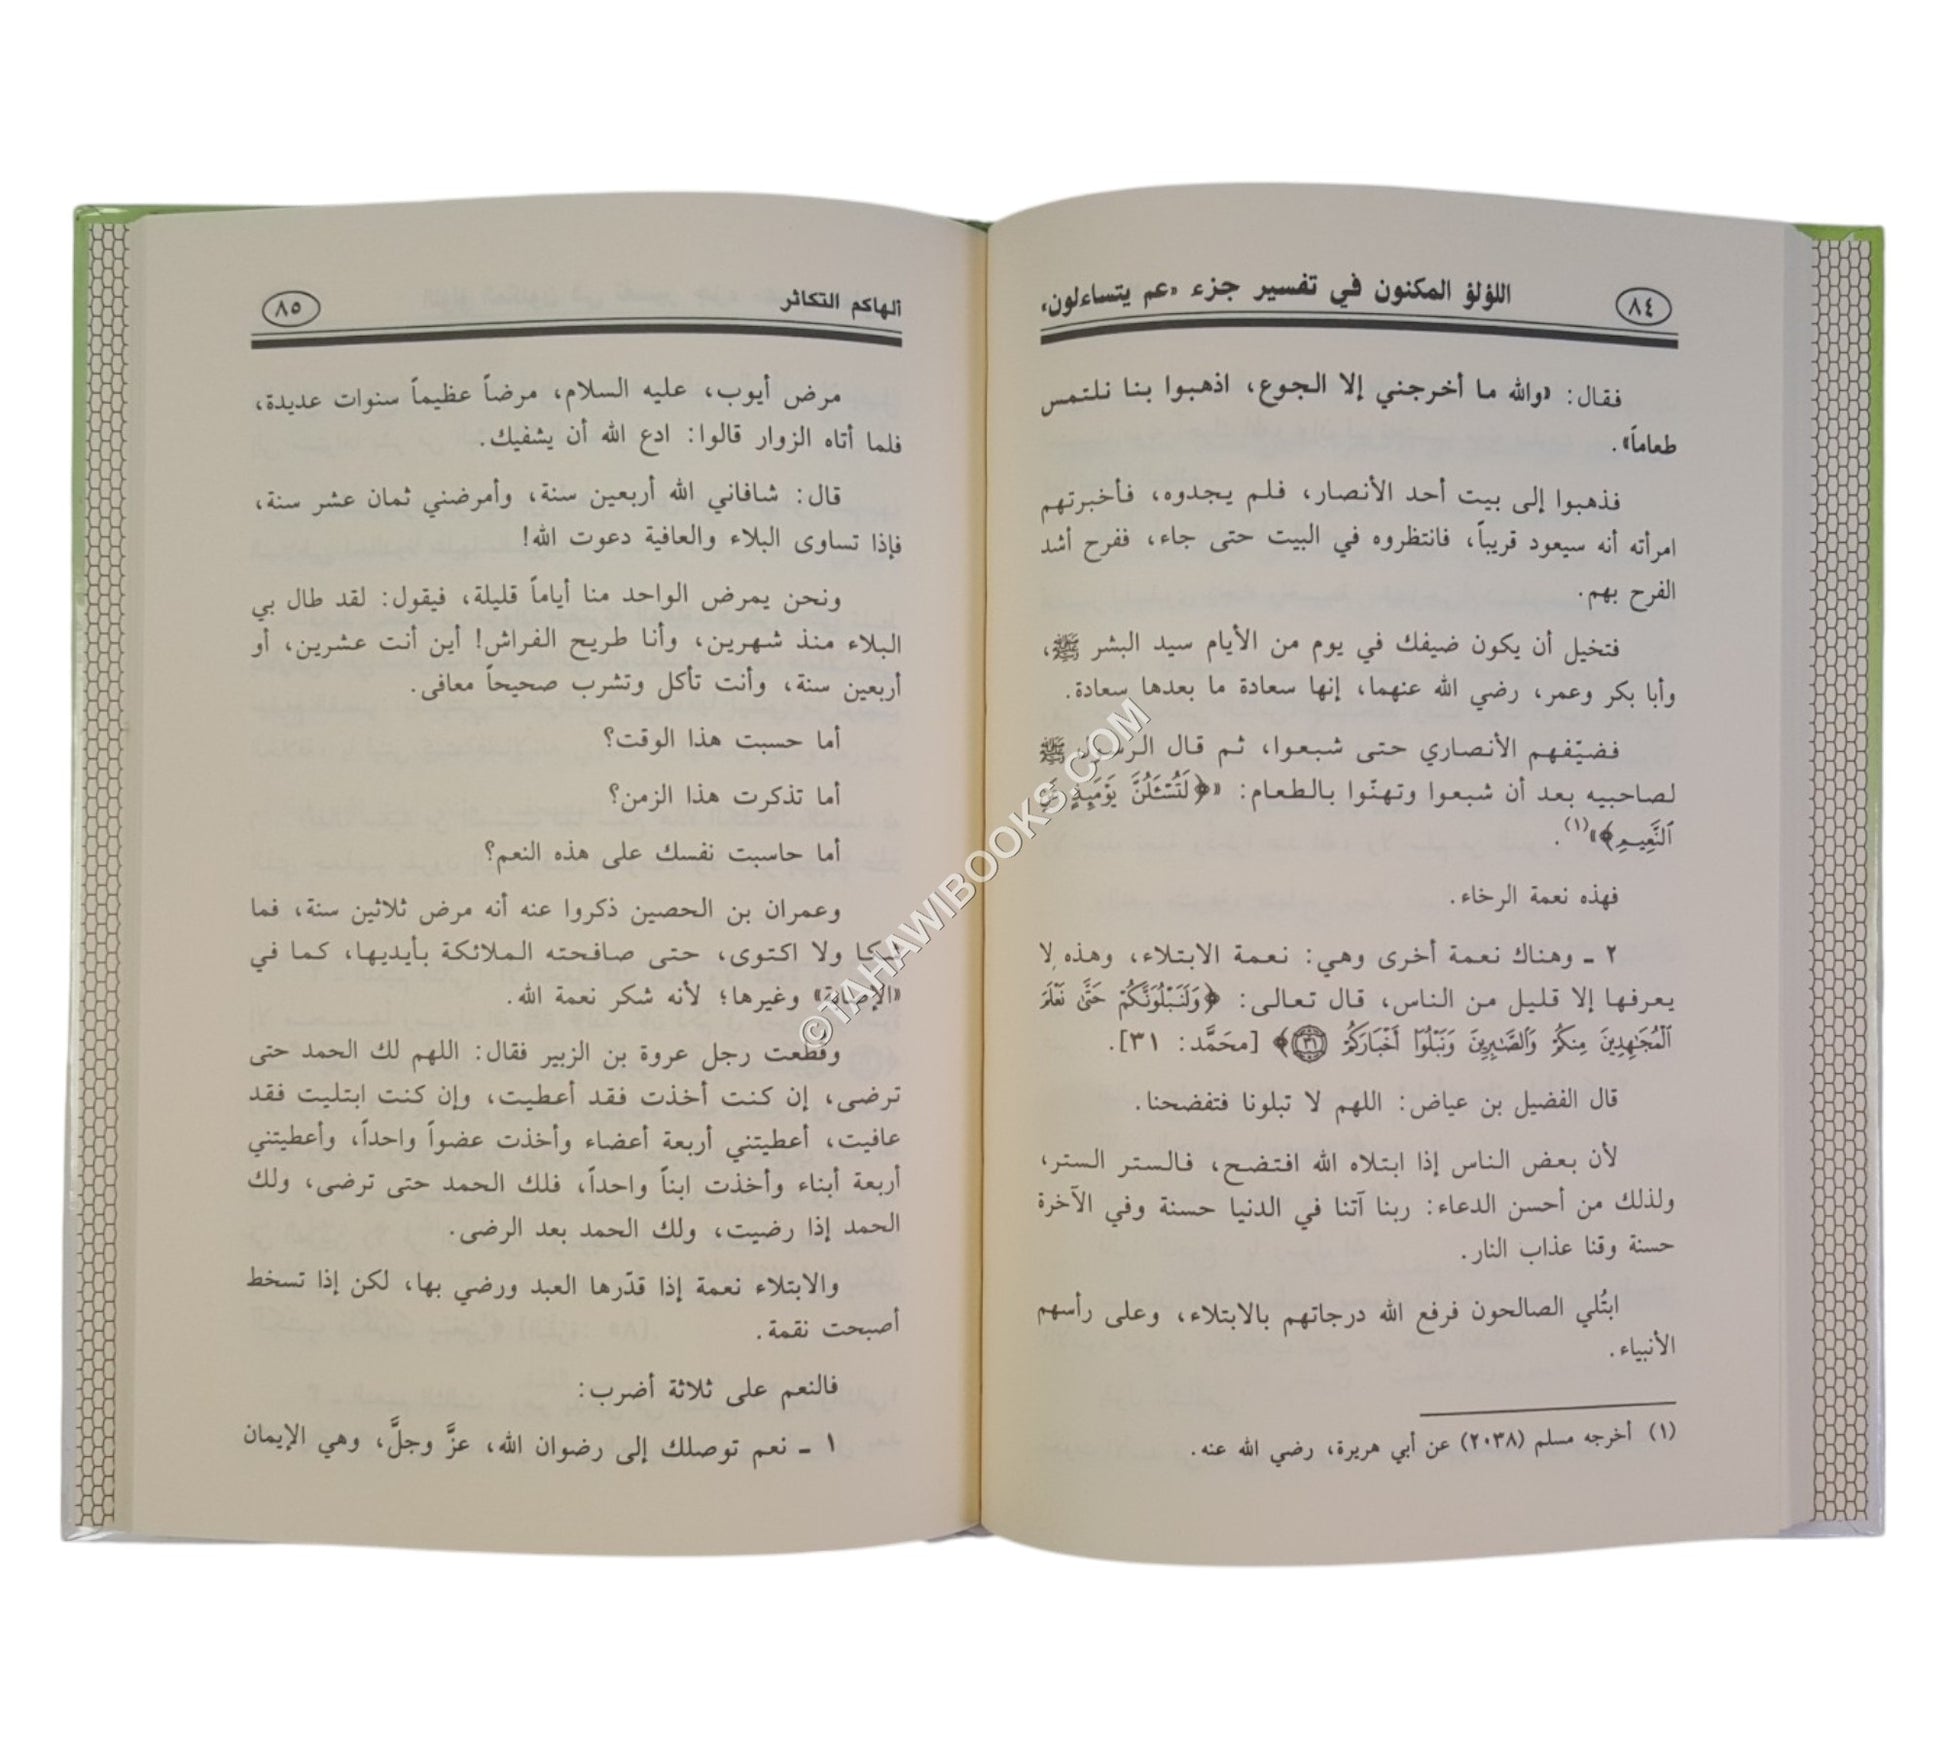 ٨٤
اللؤلؤ المكنون في تفسير جزء «عم يتساءلون»
فقال: «والله ما أخرجني إلا الجوع، اذهبوا بنا نلتمس
طعاماً».
فذهبوا إلى بيت أحد الأنصار، فلم يجدوه، فأخبرتهم
امرأته أنه سيعود قريباً، فانتظروه في البيت حتى جاء، ففرح أشد
الفرح بهم.
فتخيل أن يكون ضيفك في يوم من الأيام سيد البشر ﷺ،
وأبا بكر وعمر، رضي الله عنهما، إنها سعادة ما بعدها سعادة.
فضيّفهم الأنصاري حتى شبعوا، ثم قال الرسول ﷺ
لصاحبيه بعد أن شبعوا وتهنّوا بالطعام: «﴿لَتُسْـَٔلُنَّ يَوْمَئِذٍ عَنِ
ٱلنَّعِيمِ﴾»(١).
فهذه نعمة الرخاء.
٢ ـ وهناك نعمة أخرى وهي: نعمة الابتلاء، وهذه لا
يعرفها إلا قليل من الناس، قال تعالى: ﴿وَلَنَبْلُوَنَّكُمْ حَتَّىٰ نَعْلَمَ
ٱلْمُجَٰهِدِينَ مِنكُمْ وَٱلصَّٰبِرِينَ وَنَبْلُوَا۟ أَخْبَارَكُمْ ٣١﴾ [محَمَّد: ٣١].
قال الفضيل بن عياض: اللهم لا تبلونا فتفضحنا.
لأن بعض الناس إذا ابتلاه الله افتضح، فالستر الستر،
ولذلك من أحسن الدعاء: ربنا آتنا في الدنيا حسنة وفي الآخرة
حسنة وقنا عذاب النار.
ابتُلي الصالحون فرفع الله درجاتهم بالابتلاء، وعلى رأسهم
الأنبياء.
(١) أخرجه مسلم (٢٠٣٨) عن أبي هريرة، رضي الله عنه.
ألهاكم التكاثر
٨٥
مرض أيوب، عليه السلام، مرضاً عظيماً سنوات عديدة،
فلما أتاه الزوار قالوا: ادع الله أن يشفيك.
قال: شافاني الله أربعين سنة، وأمرضني ثمان عشر سنة،
فإذا تساوى البلاء والعافية دعوت الله!
ونحن يمرض الواحد منا أياماً قليلة، فيقول: لقد طال بي
البلاء منذ شهرين، وأنا طريح الفراش! أين أنت عشرين، أو
أربعين سنة، وأنت تأكل وتشرب صحيحاً معافى.
أما حسبت هذا الوقت؟
أما تذكرت هذا الزمن؟
أما حاسبت نفسك على هذه النعم؟
وعمران بن الحصين ذكروا عنه أنه مرض ثلاثين سنة، فما
شكا ولا اكتوى، حتى صافحته الملائكة بأيديها، كما في
«الإصابة» وغيرها؛ لأنه شكر نعمة الله.
وقطعت رجل عروة بن الزبير فقال: اللهم لك الحمد حتى
ترضى، إن كنت أخذت فقد أعطيت، وإن كنت ابتليت فقد
عافيت، أعطيتني أربعة أعضاء وأخذت عضواً واحداً، وأعطيتني
أربعة أبناء وأخذت ابناً واحداً، فلك الحمد حتى ترضى، ولك
الحمد إذا رضيت، ولك الحمد بعد الرضى.
والابتلاء نعمة إذا قدّرها العبد ورضي بها، لكن إذا تسخط
أصبحت نقمة.
فالنعم على ثلاثة أضرب:
١ ـ نعم توصلك إلى رضوان الله، عزَّ وجلَّ، وهي الإيمان
©TAHAWIBOOKS.COM